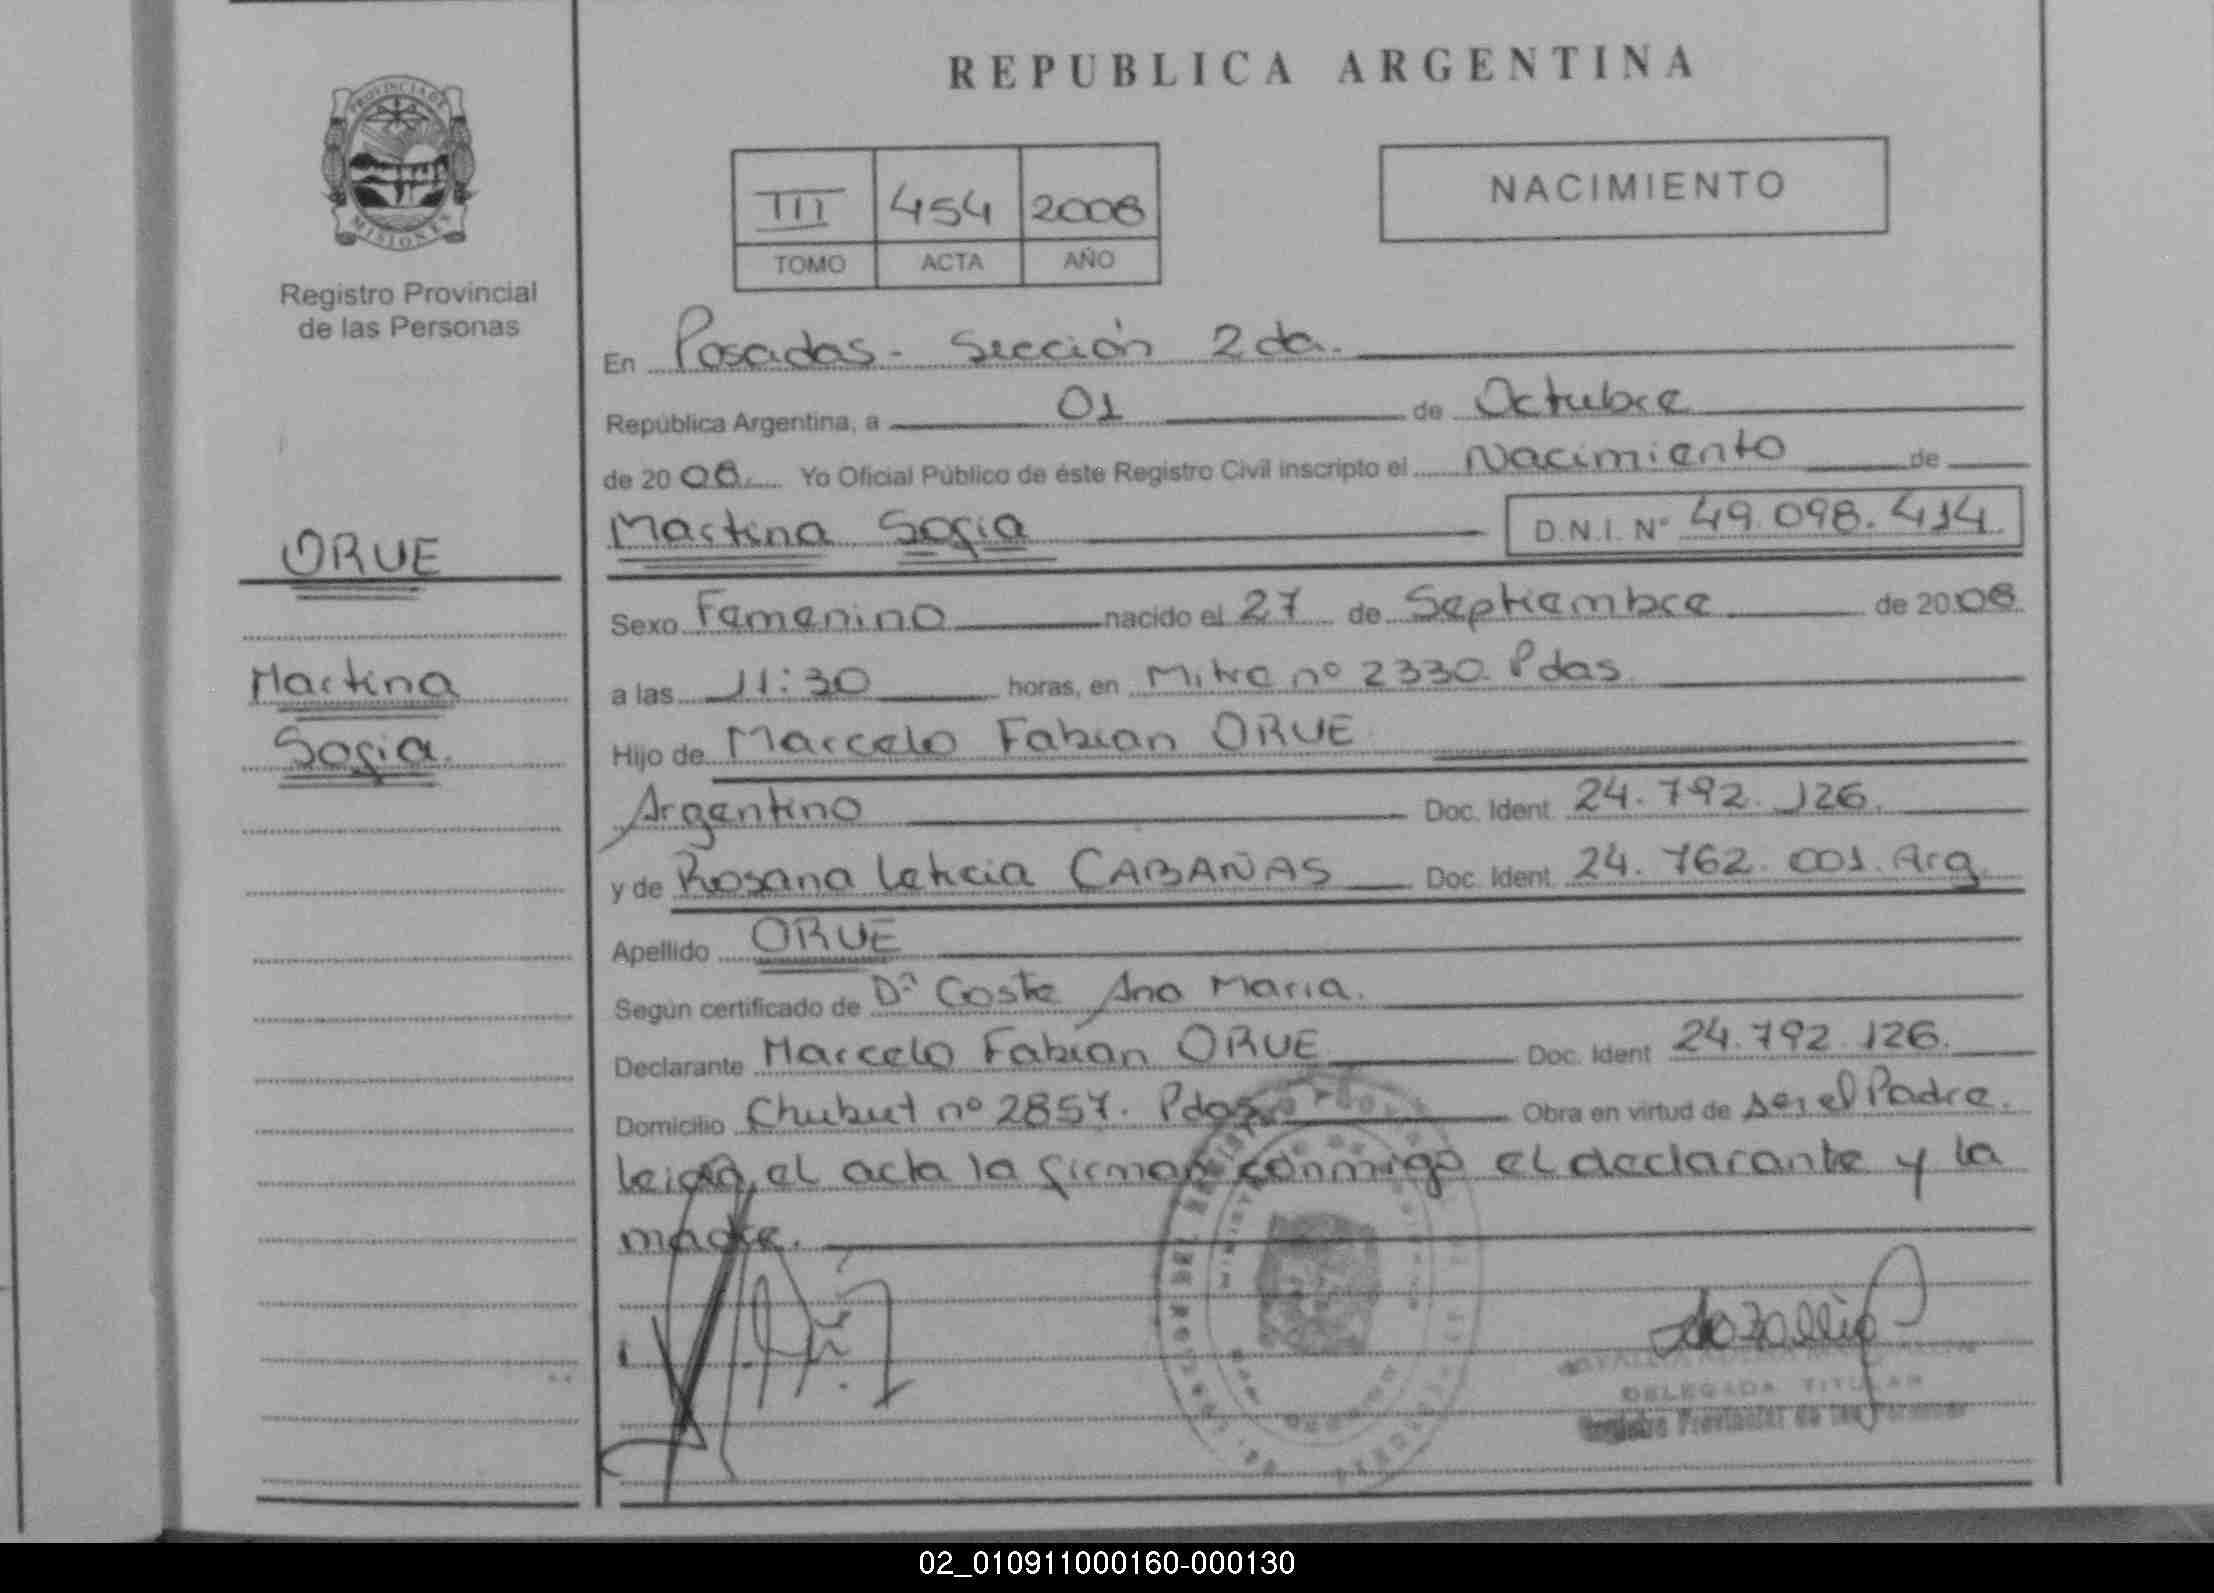 REPUBLICA ARGENTINA
PROVINCIA DE
MISIONES
Registro Provincial
de las Personas
III 454 2008
TOMO ACTA AÑO
NACIMIENTO
En Posadas - Sección 2da.
República Argentina, a 01 de Octubre
de 2008. Yo Oficial Público de éste Registro Civil inscripto el Nacimiento de
Martina Sofia D.N.I. Nº 49.098.414
ORUE
Martina
Sofia.
Sexo Femenino nacido el 27 de Septiembre de 2008
a las 11:30 horas, en Mitre nº 2330. Pdas.
Hijo de Marcelo Fabian ORUE
Argentino Doc. Ident. 24.792.126.
y de Rosana Leticia CABAÑAS Doc. Ident. 24.762.001. Arg.
Apellido ORUE
Según certificado de Dª Coste Ana Maria.
Declarante Marcelo Fabian ORUE Doc. Ident 24.792.126.
Domicilio Chubut nº 2857. Pdas. Obra en virtud de ser el Padre.
leida el acta la firman conmigo el declarante y la
madre.
DELEGADA TITULAR
Registro Provincial de las Personas
02_010911000160-000130